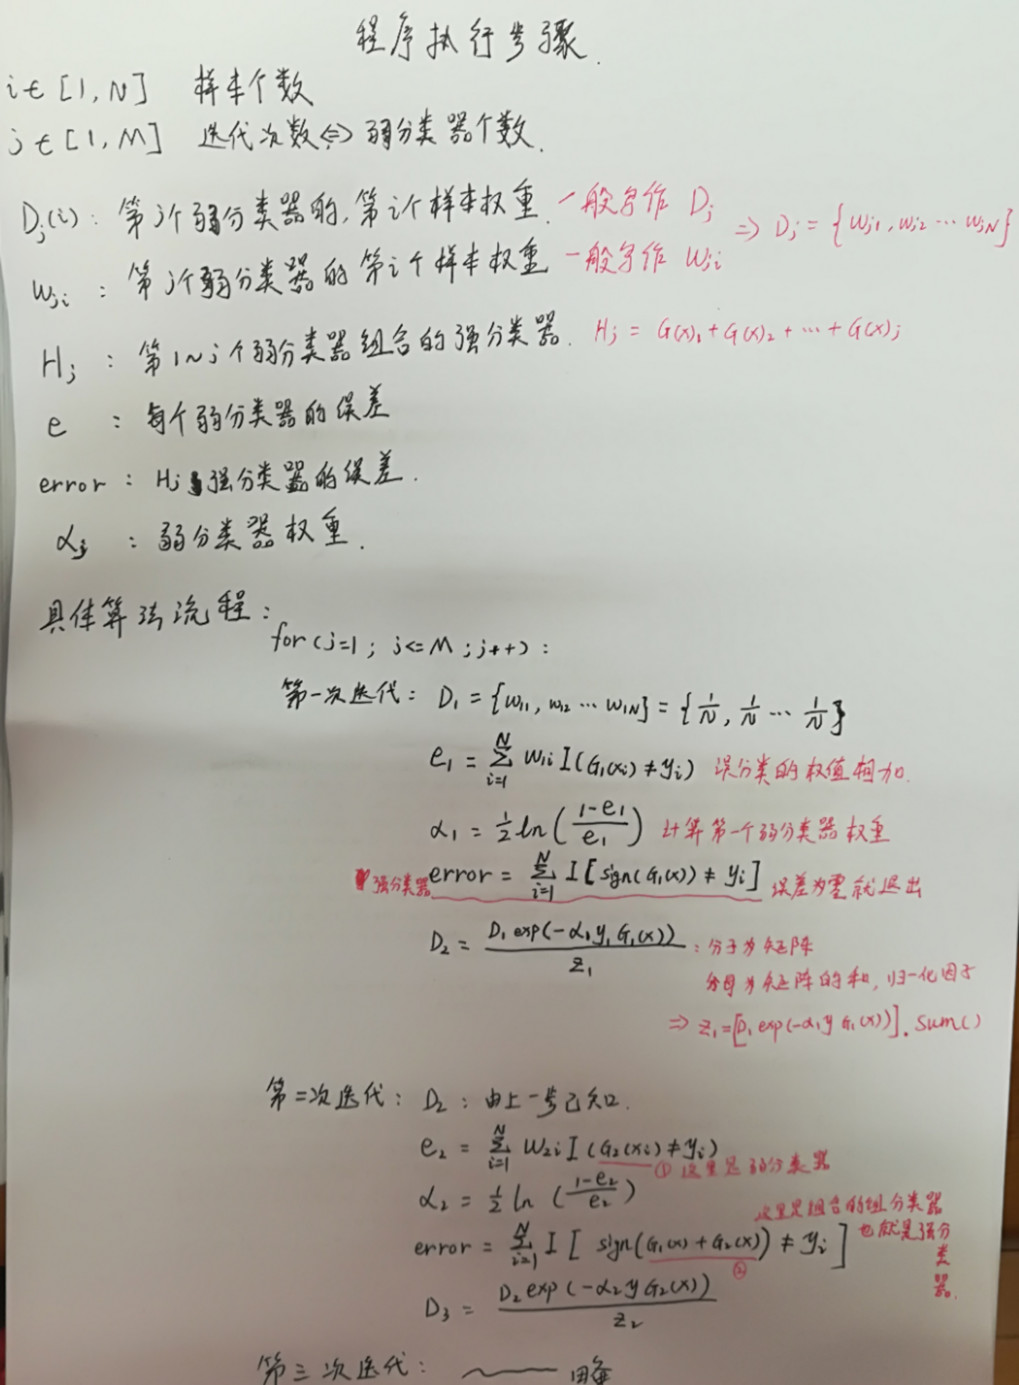 程序执行步骤.
i∈[1,N] 样本个数
j∈[1,M] 迭代次数<=>弱分类器个数.
Dj(i): 第j个弱分类器的,第i个样本权重. 一般写作 Dj => Dj = {wj1, wj2 ... wjN}
wji : 第j个弱分类器的第i个样本权重 一般写作 wji
Hj : 第1~j个弱分类器组合的强分类器. Hj = G(x)1+G(x)2+...+G(x)j
e : 每个弱分类器的误差
error : Hj 强分类器的误差.
αj : 弱分类器权重.
具体算法流程:
for(j=1; j<=M; j++):
第一次迭代: D1 = {w11, w12 ... w1N} = {1/N, 1/N ... 1/N}
e1 = Σ(i=1→N) w1i I(G1(xi) ≠ yi) 误分类的权值相加.
α1 = 1/2 ln((1-e1)/e1) 计算第一个弱分类器权重
强分类器 error = Σ(i=1→N) I[sign(G1(x)) ≠ yi] 误差为零就退出
D2 = D1 exp(-α1 y1 G1(x)) / Z1 : 分子为矩阵
分母为矩阵的和, 归一化因子
=> Z1=[D1 exp(-α1 y G1(x))].sum()
第二次迭代: D2 : 由上一步已知.
e2 = Σ(i=1→N) w2i I(G2(xi) ≠ yi)
①这里是弱分类器
α2 = 1/2 ln((1-e2)/e2)
这里是组合的组分类器
也就是强分类器.
error = Σ(i=1→N) I[sign(G1(x)+G2(x)) ≠ yi]
②
D3 = D2 exp(-α2 y G2(x)) / Z2
第三次迭代: 略